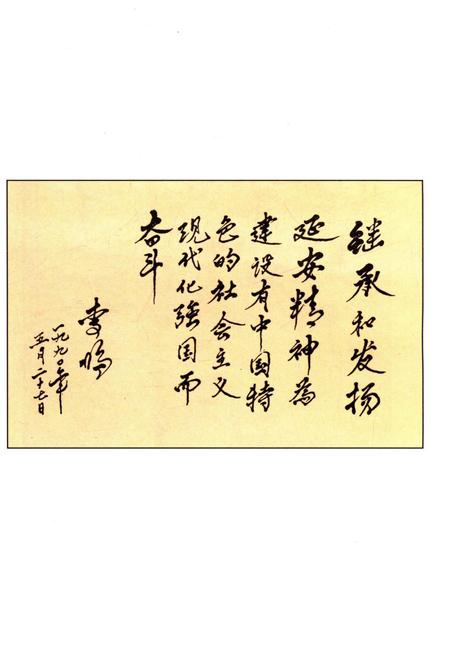 继承和发扬
延安精神为
建设有中国特
色的社会主义
现代化强国而
奋斗
李鹏
一九九〇年
五月二十七日